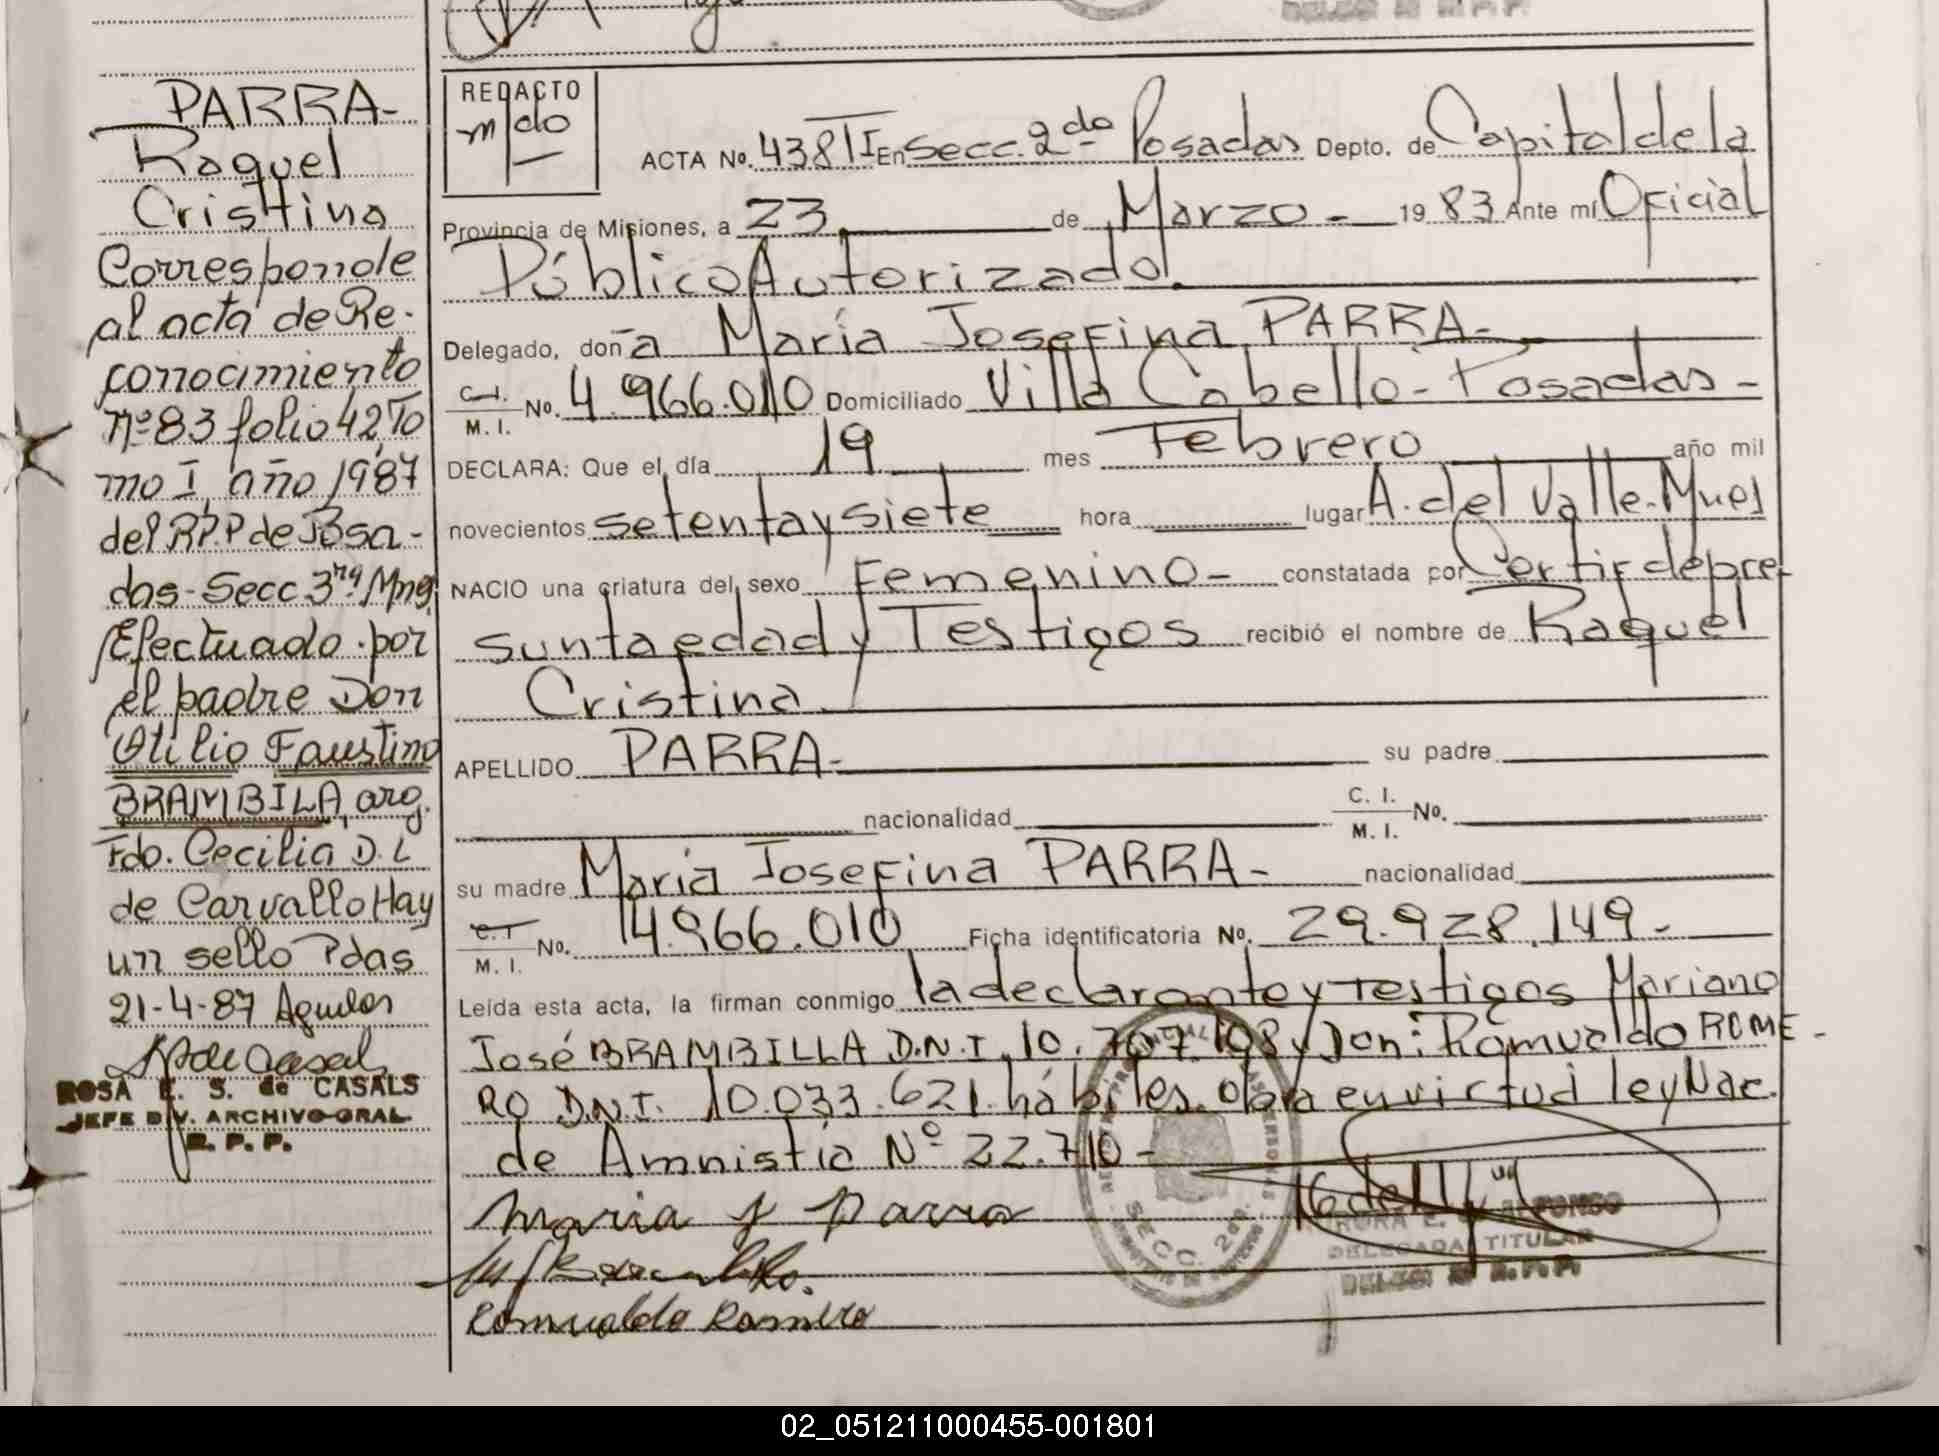 PARRA-
Raquel
Cristina
Corresponde
al acta de Re-
conocimiento
Nº 83 folio 42, To
mo I, año 1987
del R.P.P de Posa-
das- Secc 3ra Mnes
Efectuado por
el padre Don
Otilio Faustino
BRAMBILA, arg.
Fdo. Cecilia D. L
de Carvallo Hay
un sello Pdas
21-4-87
ROSA E. S. de CASALS
JEFE DIV. ARCHIVO GRAL
R. P. P.
REDACTO
ACTA No. 438 TI En Secc. 2da Posadas Depto. de Capital de la
Provincia de Misiones, a 23 de Marzo - 19 83 Ante mí Oficial
Público Autorizado.
Delegado, doña María Josefina PARRA-
C.I. M. I. No. 4.966.010 Domiciliado Villa Cabello - Posadas -
DECLARA: Que el día 19 mes Febrero año mil
novecientos setenta y siete hora lugar A. del Valle. Mnes
NACIO una criatura del sexo Femenino - constatada por Certif de pre-
sunta edad y Testigos recibió el nombre de Raquel
Cristina.
APELLIDO PARRA- su padre
nacionalidad C. I. M. I. No.
su madre María Josefina PARRA- nacionalidad
C.I M. I. No. 4.966.010 Ficha identificatoria No. 29.928.149-
Leída esta acta, la firman conmigo la declarante y Testigos Mariano
José BRAMBILLA D.N.I. 10.707.198 y Don: Romualdo ROME-
RO D.N.I. 10.033.621. hábiles. Obra en virtud ley Nac.
de Amnistia Nº 22.710-
Maria J Parra
Romualdo Romero
SECC. 2da.
DELEGADA TITULAR
R. P. P.
02_051211000455-001801